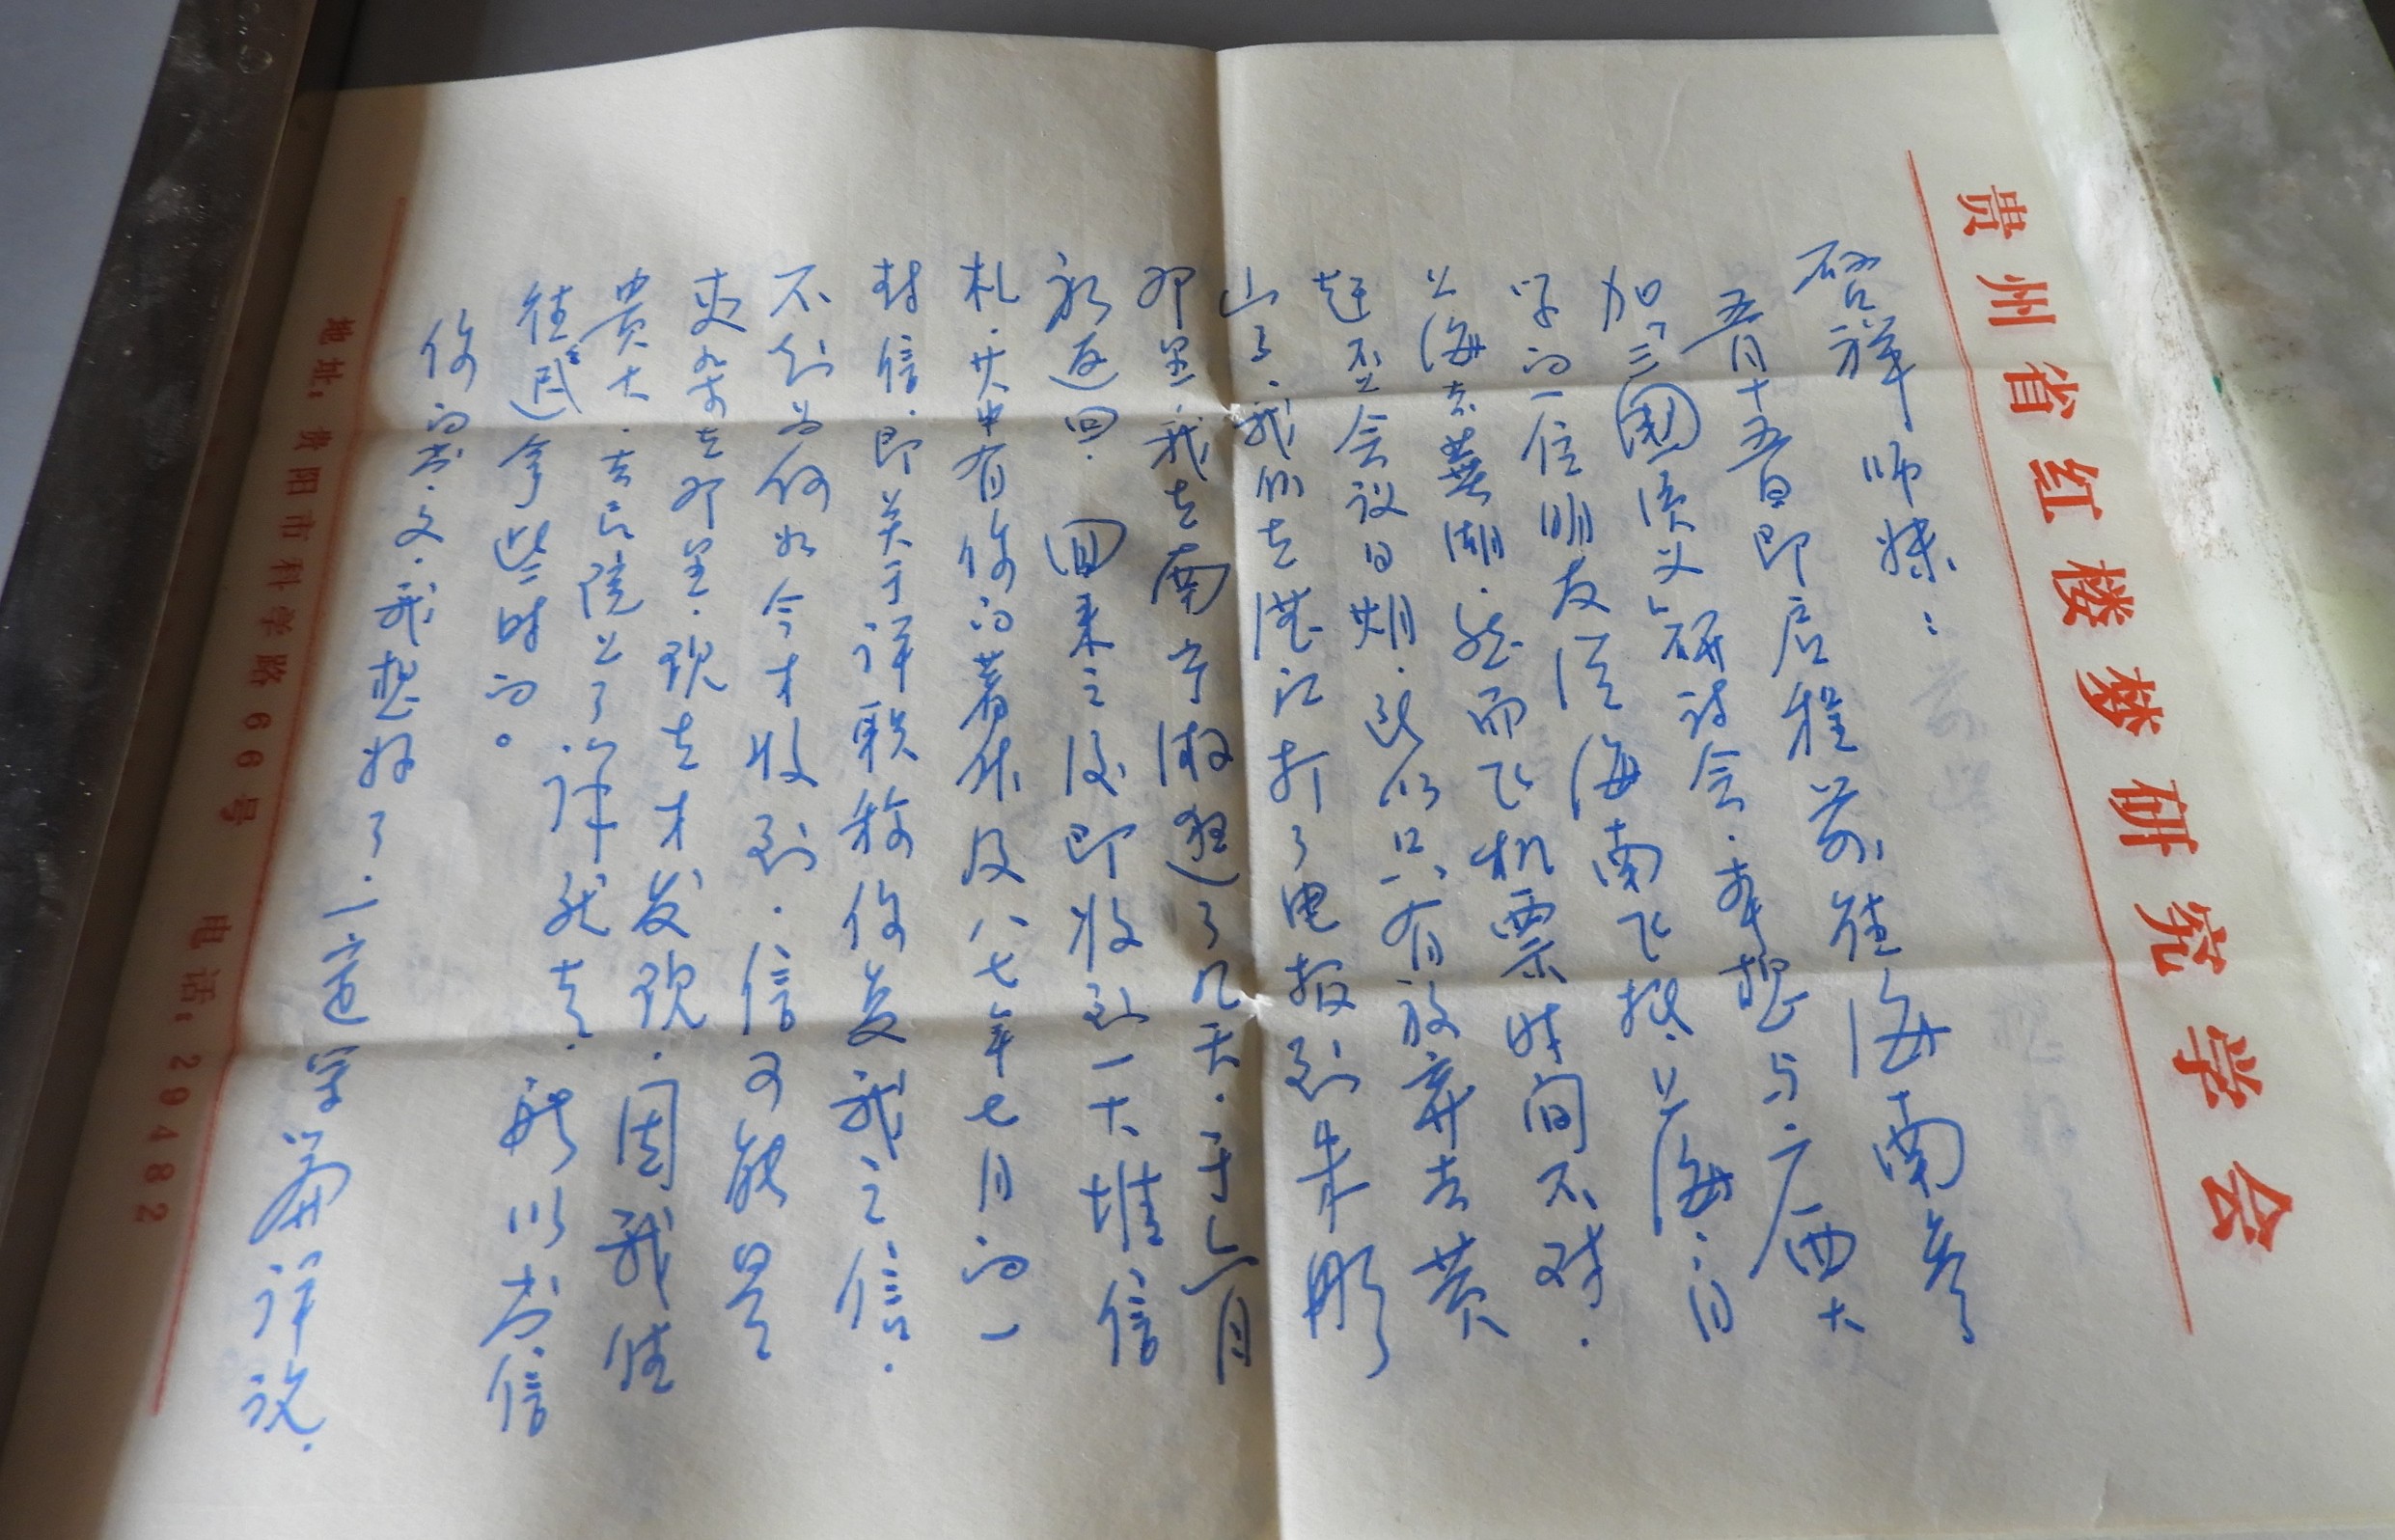 贵州省红楼梦研究学会
启祥师妹：
五月十五日即启程前往海南参
加《三国演义》研讨会.本想与广西大
学的一位朋友从海南飞抵上海.由
上海去芜湖.然而飞机票时间不对.
赶不上会议日期.所以只有放弃去黄
山了.我们去湛江打了电报到朱彤
那里.我去南宁激逛了几天.于六月
初返回. 回来之后即收到一大堆信
札.其中有你的著作及八七年七月的一
封信.即关于详联称你复我之信.
不知为何如今才收到.信可能是
夹杂在那里.现在才发现.因我住
贵大.去民院上了课就走.所以书信
往返拿些时的。
你的书.文.我想好了.一定写篇评说.
地址：贵阳市科学路66号 电话：29482